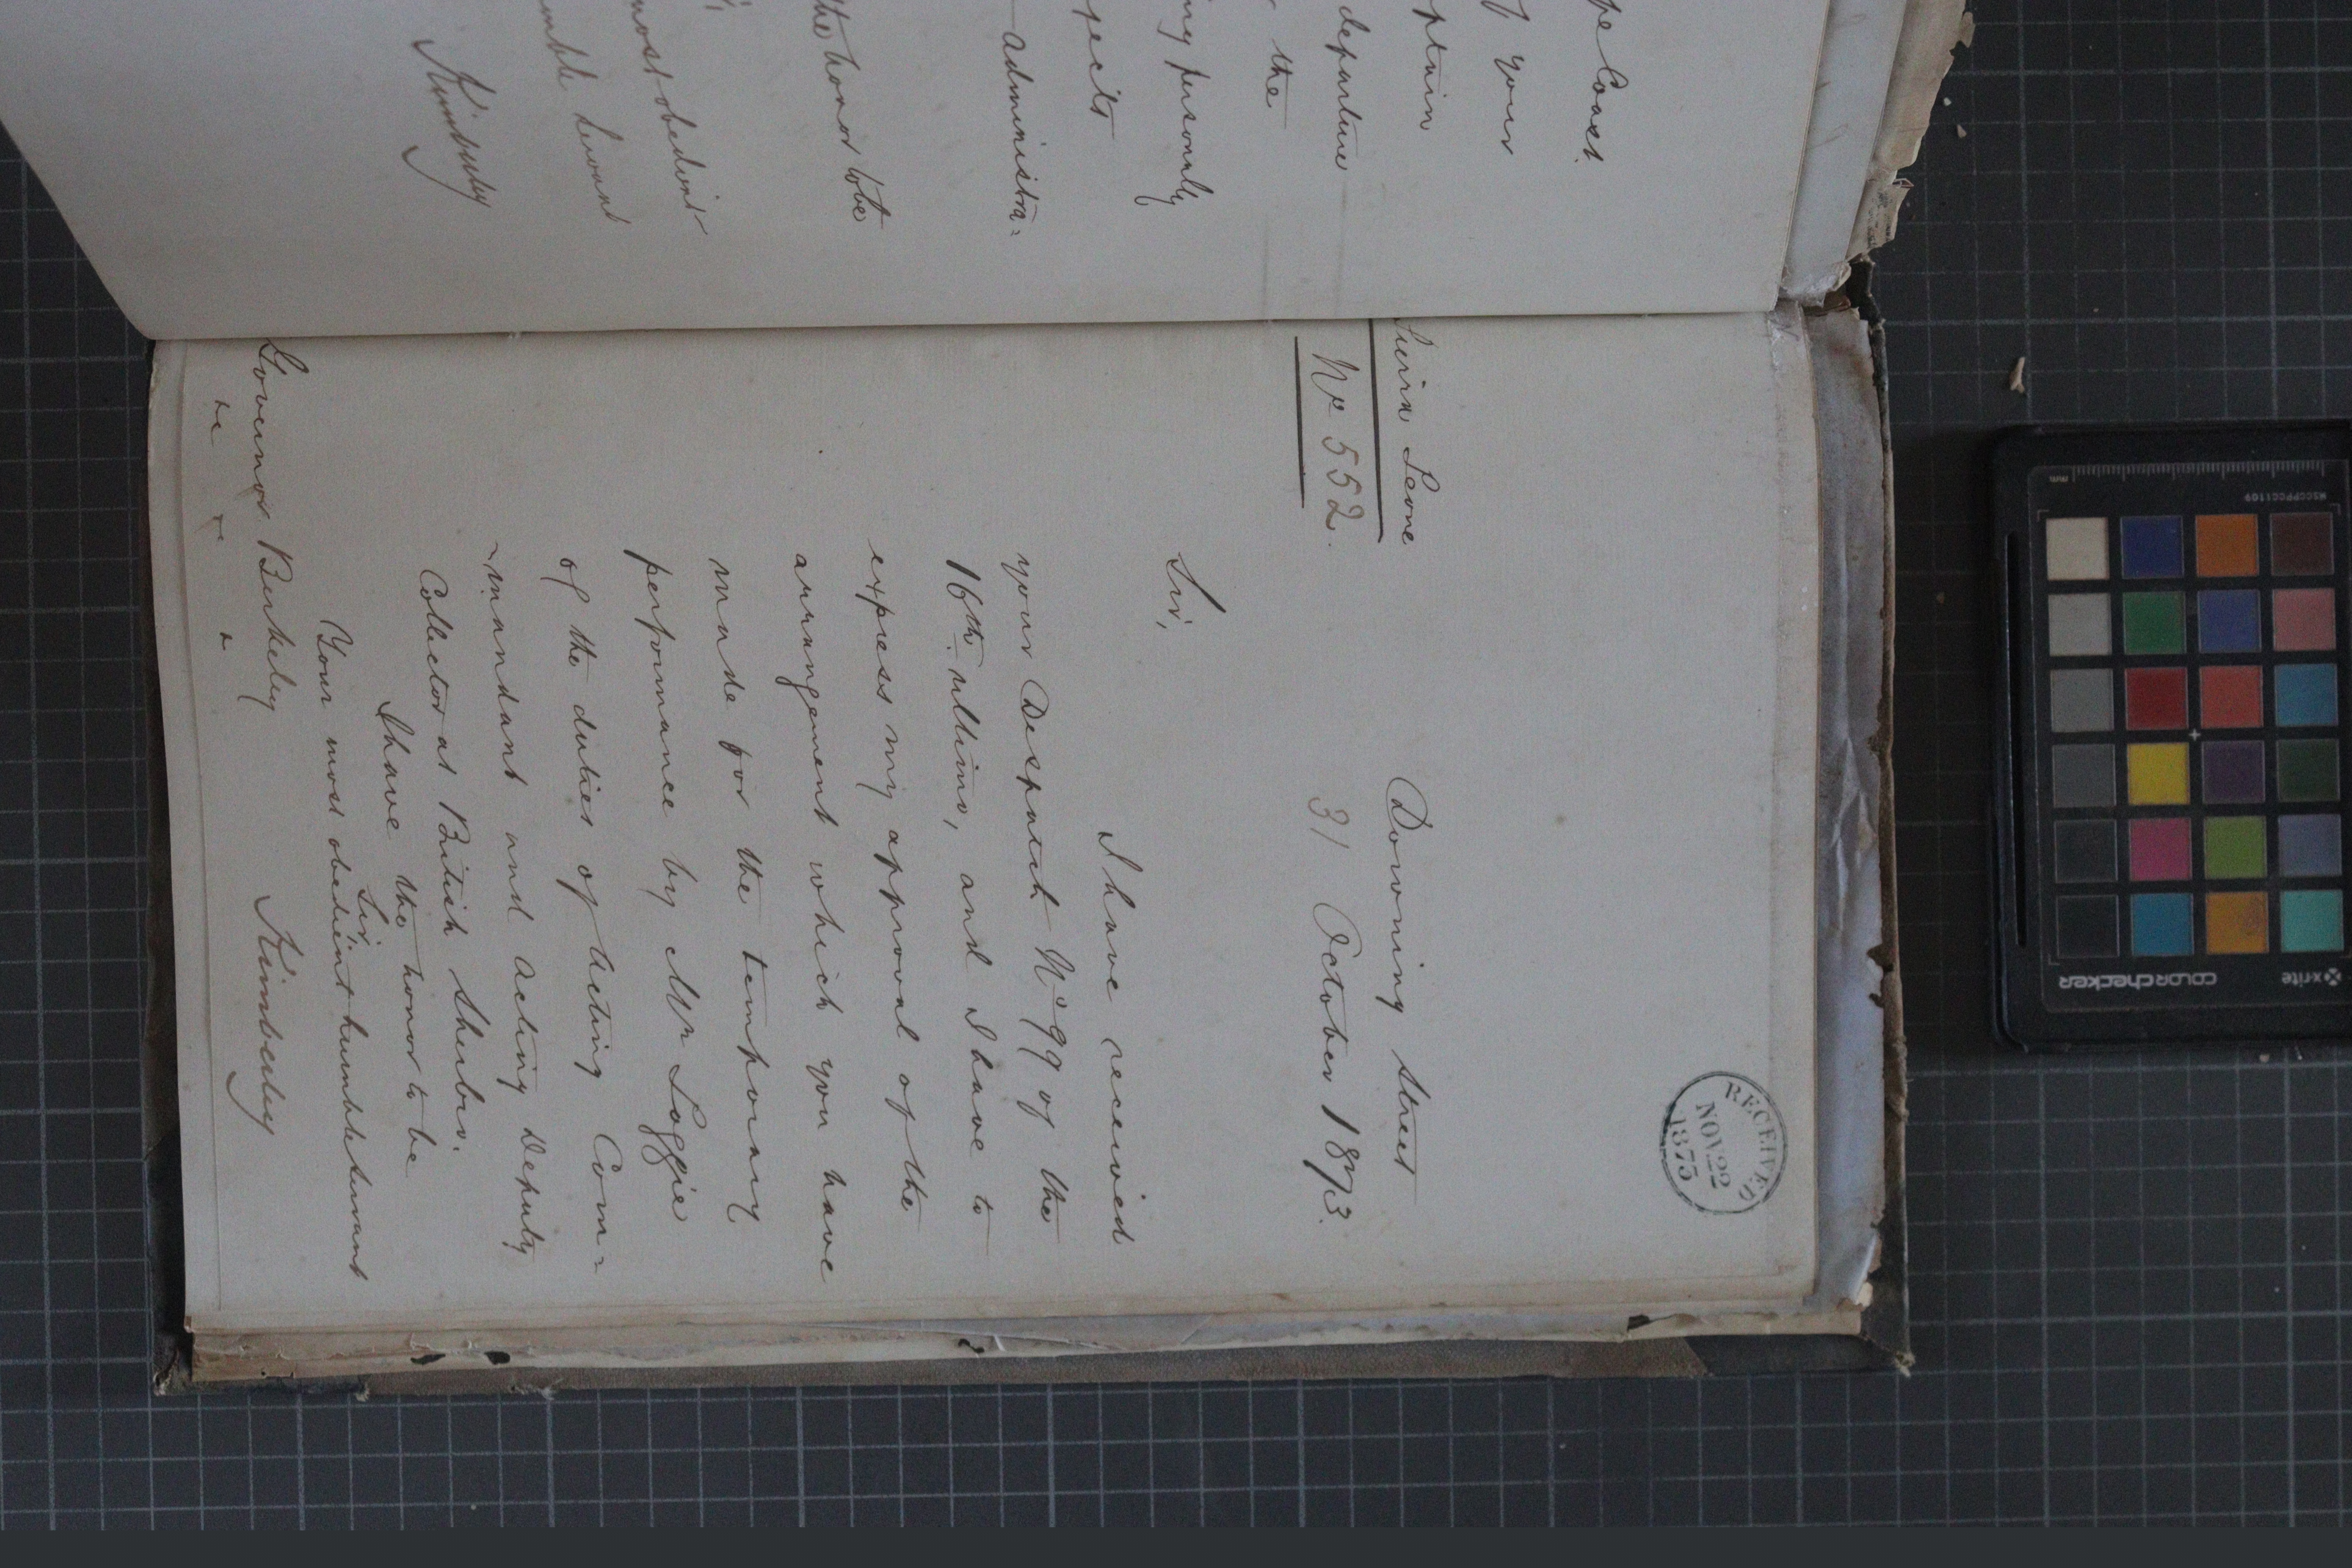 pe Coast
f your
ptain
departure
the
ng personly
pects
- administra=
the honor to be
most obedient
mble servant
Kimberley
RECEIVED
NOV 22
1873
Sierra Leone
No 552.
Downing Street
31 October 1873.
Sir,
I have received
your Despatch No 99 of the
16th ultimo, and I have to
express my approval of the
arrangement which you have
made for the temporary
performance by Mr Loggie
of the duties of Acting Com=
~mandant and Acting Deputy
Collector at British Sherbro.
I have the honor to be
Sir
Your most obedient humble servant
Kimberley
Governor Berkeley
&c &c &c
mm
MSCCPPCC1109
x-rite
colorchecker